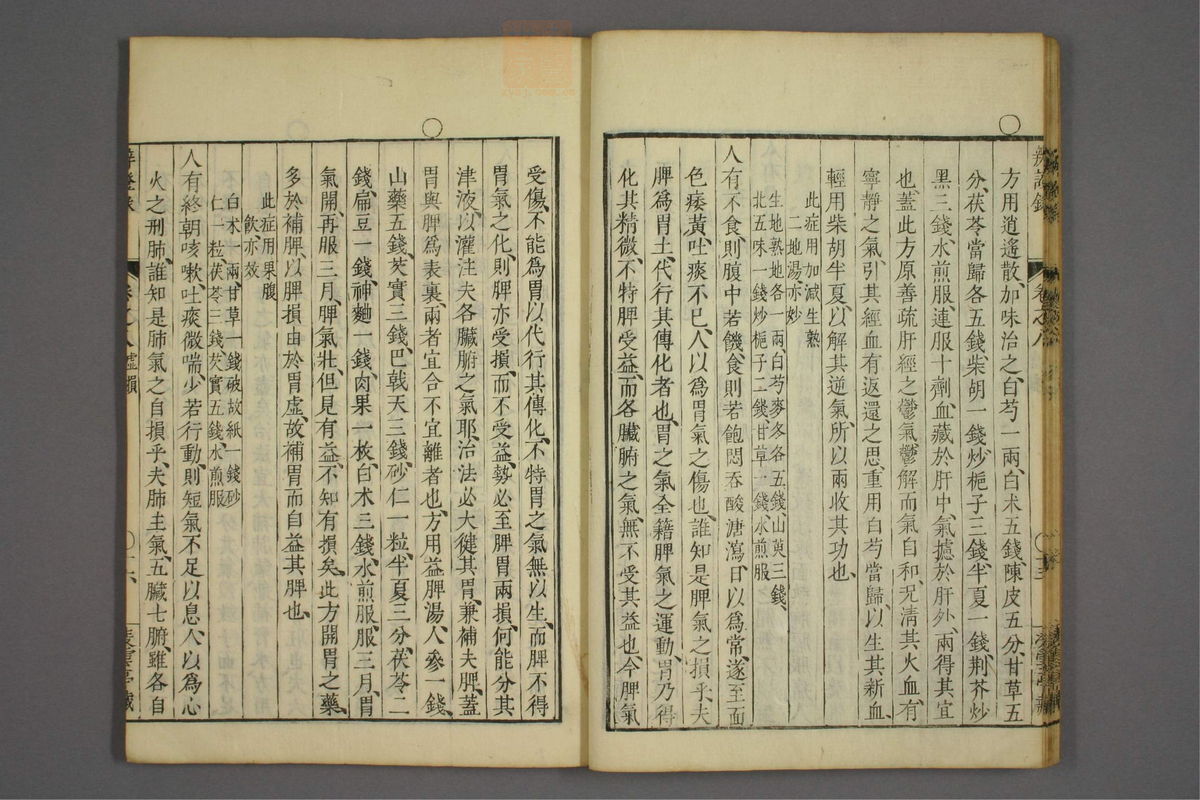 方用逍遙散、加味治之、白芍一兩、白术五錢、陳皮五分、甘草五
分、茯苓當歸各五錢、柴胡一錢、炒梔子三錢、半夏一錢、荆芥炒
黑三錢、水煎服、連服十劑、血藏於肝中、氣攄於肝外、兩得其宜
也、蓋此方原善疏肝經之鬱氣、鬱解而氣自和、况清其火、血有
寧靜之氣、引其經、血有返還之思、重用白芍當歸、以生其新血、
輕用柴胡半夏、以解其逆氣、所以兩收其功也、
此症用加减生熟
二地湯亦妙
生地熟地各一兩白芍麥冬各五錢、山萸三錢、
北五味一錢炒梔子二錢甘草一錢水煎服
人有不食、則腹中若饑、食則若飽悶、吞酸溏瀉、日以爲常、遂至面
色痿黃、吐痰不已、人以爲胃氣之傷也、誰知是脾氣之損乎、夫
脾爲胃土、代行其傳化者也、胃之氣全藉脾氣之運動、胃乃得
化其精微、不特脾受益、而各臟腑之氣、無不受其益也、今脾氣
受傷、不能爲胃以代行其傳化、不特胃之氣無以生、而脾不得
胃氣之化、則脾亦受損、而不受益、勢必至脾胃兩損、何能分其
津液、以灌注夫各臟腑之氣耶、治法必大健其胃、兼補夫脾、蓋
胃與脾爲表裏、兩者宜合不宜離者也、方用益脾湯、人參一錢、
山藥五錢、芡實三錢、巴戟天三錢、砂仁一粒、半夏三分、茯苓二
錢、扁豆一錢、神麯一錢、肉果一枚、白术三錢、水煎服、服三月、胃
氣開、再服三月、脾氣壯、但見有益、不知有損矣、此方開胃之藥、
多於補脾、以脾損由於胃虛、故補胃而自益其脾也、
此症用果腹
飲亦效
白术一兩、甘草一錢破故紙一錢砂
仁一粒茯苓三錢芡實五錢、水煎服
人有終朝咳嗽、吐痰微喘、少若行動、則短氣不足以息、人以爲心
火之刑肺、誰知是肺氣之自損乎、夫肺主氣、五臟七腑、雖各自
卷之八 虛損